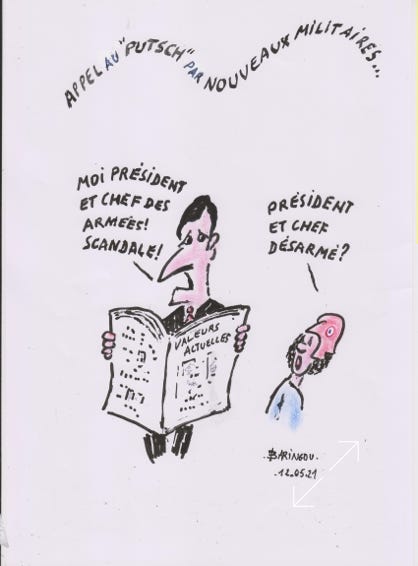 APPEL AU "PUTSCH" PAR NOUVEAUX MILITAIRES...
MOI PRÉSIDENT
ET CHEF DES
ARMÉES!
SCANDALE!
PRÉSIDENT
ET CHEF
DÉSARMÉ?
VALEURS
ACTUELLES
BARINGOU.
.12.05.21